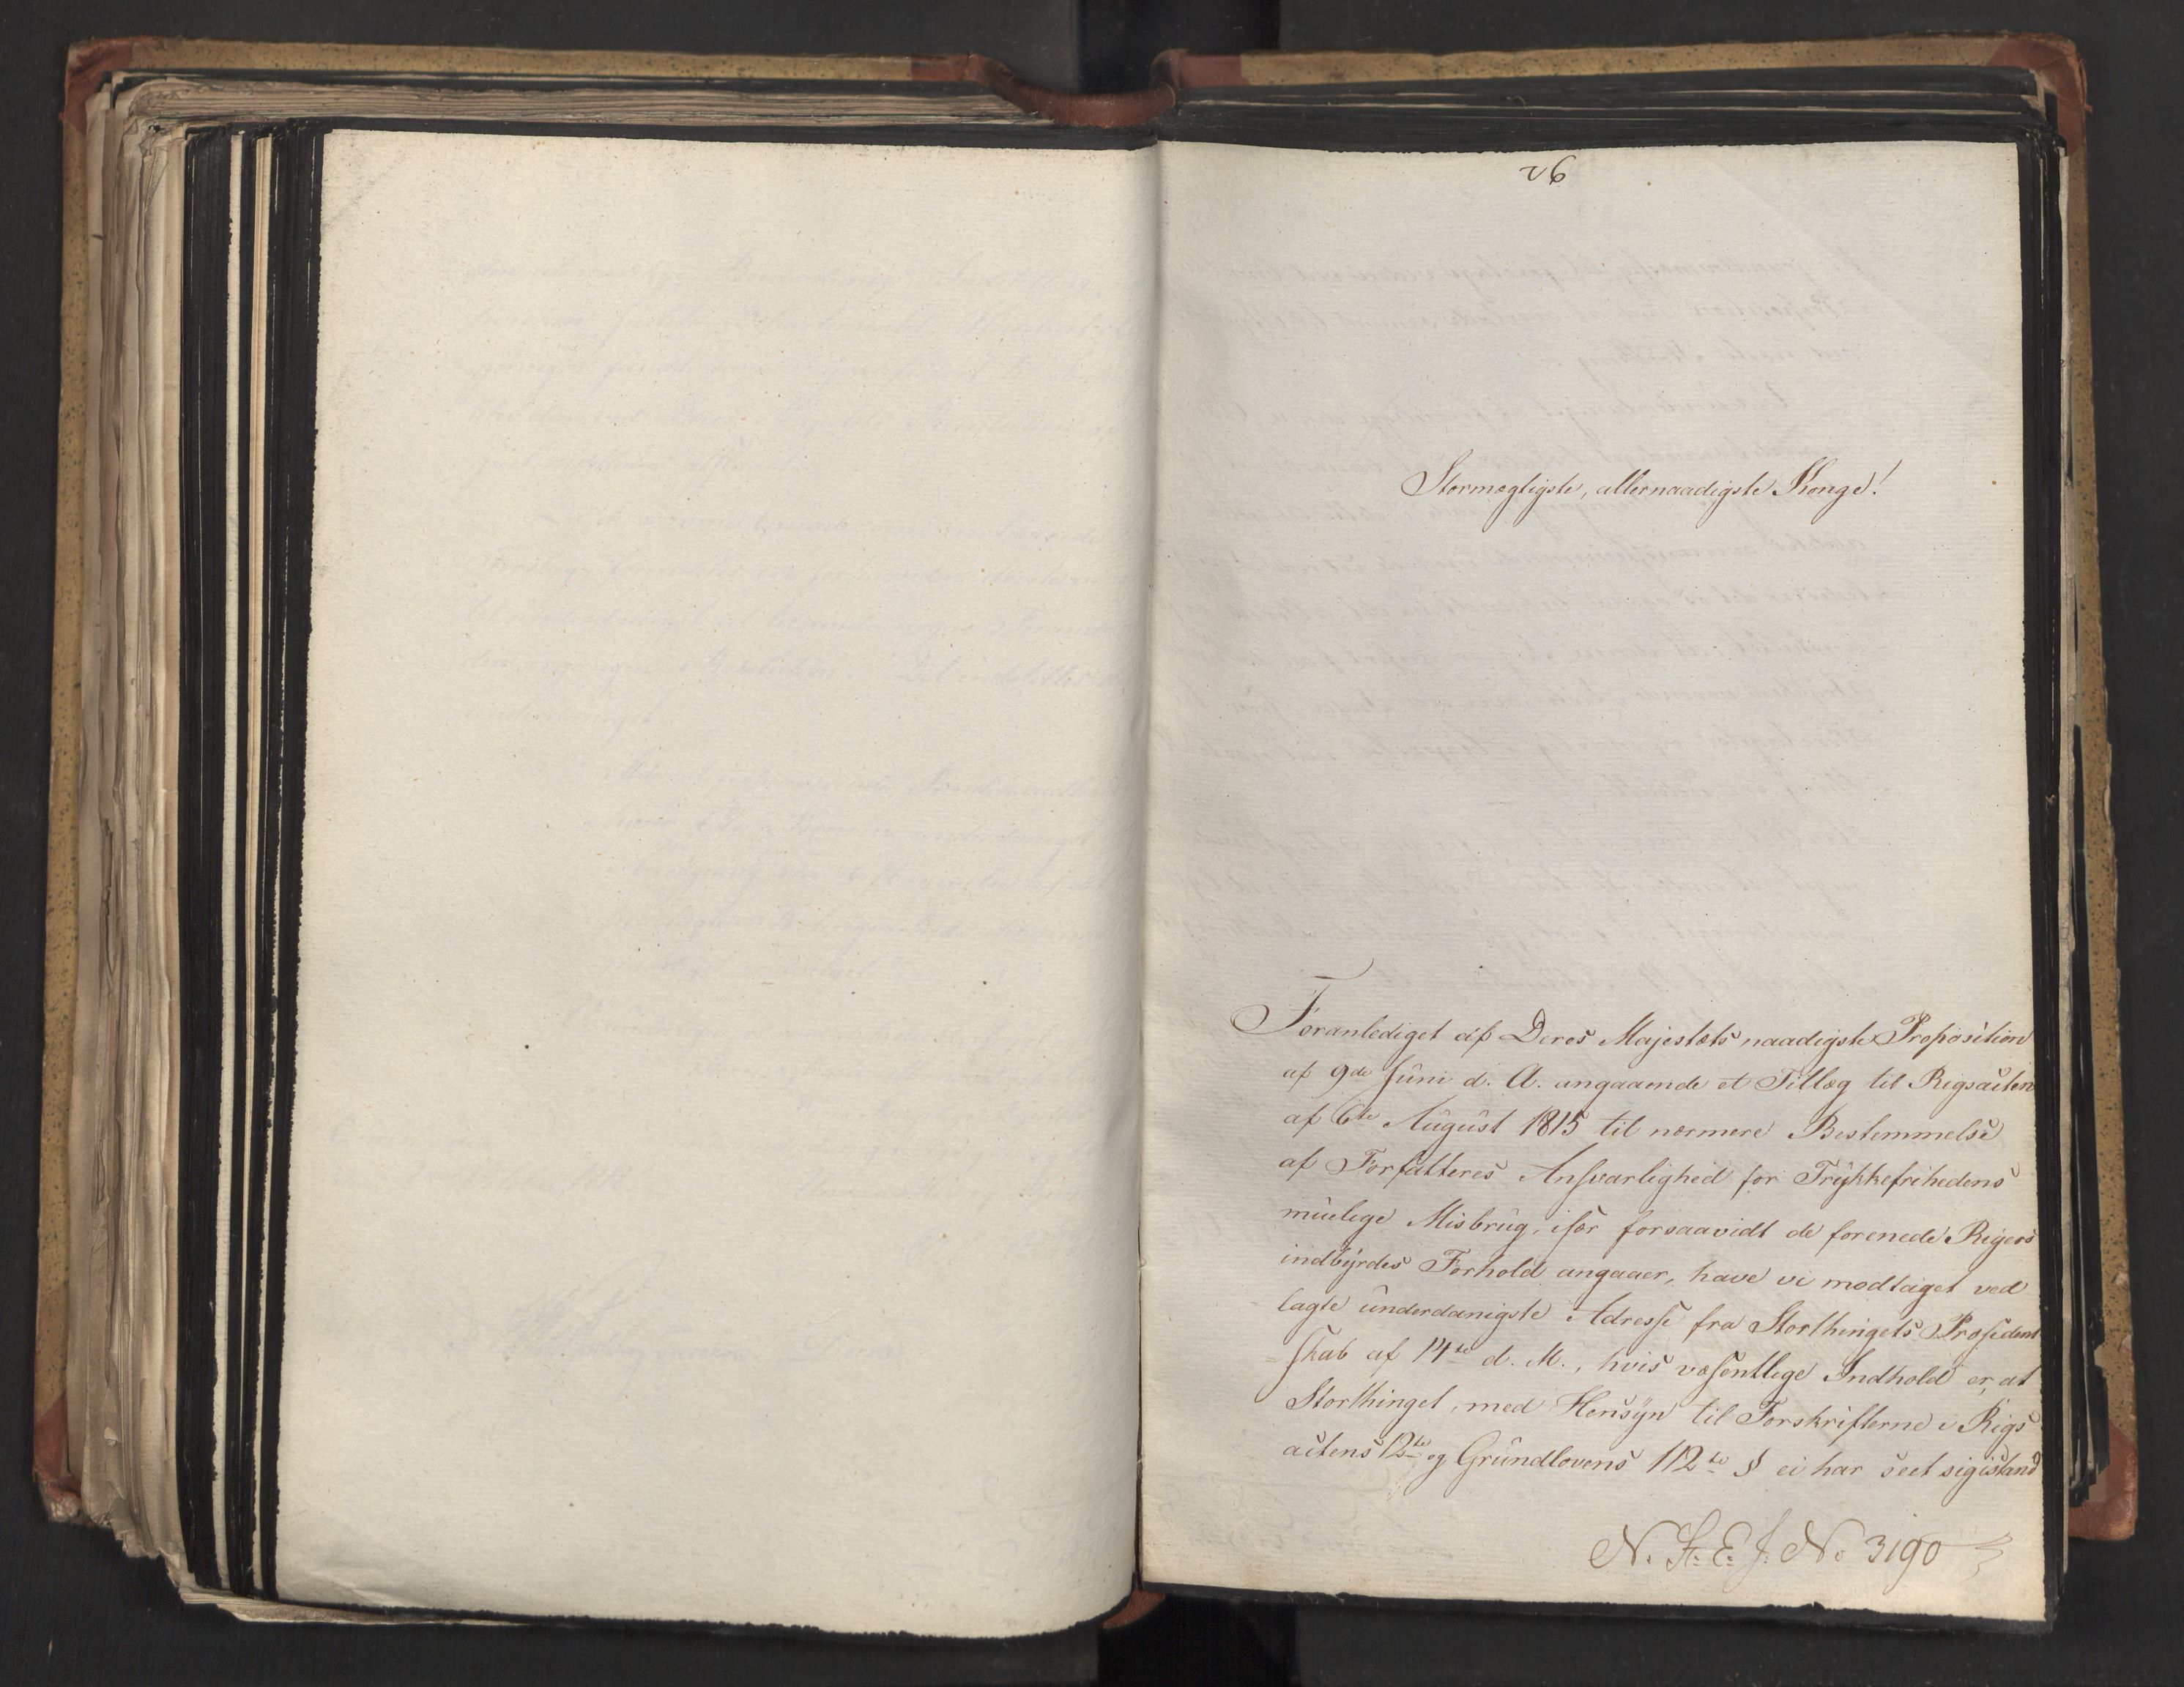 26
Stormægtigste, allernaadigste Konge!
Foranlediget af Deres Majestæts naadigste Proposition
af 9de Juni d. A. angaaende et Tillæg til Rigsacten
af 6te August 1815 til nærmere Bestemmelse
af Forfatteres Ansvarlighed for Trykkefrihedens
muelige Misbrug, især forsaavidt de forenede Rigers
indbyrdes Forhold angaaer, have vi modtaget ved
lagte underdanigste Adresse fra Storthingets Præsident
=skab af 14de d. M., hvis væsentlige Indhold er, at
Storthinget, med Hensyn til Forskrifterne i Rigs
actens 12te og Grundlovens 112te § ei har seet sig istand
N. St: E: J: No 3190